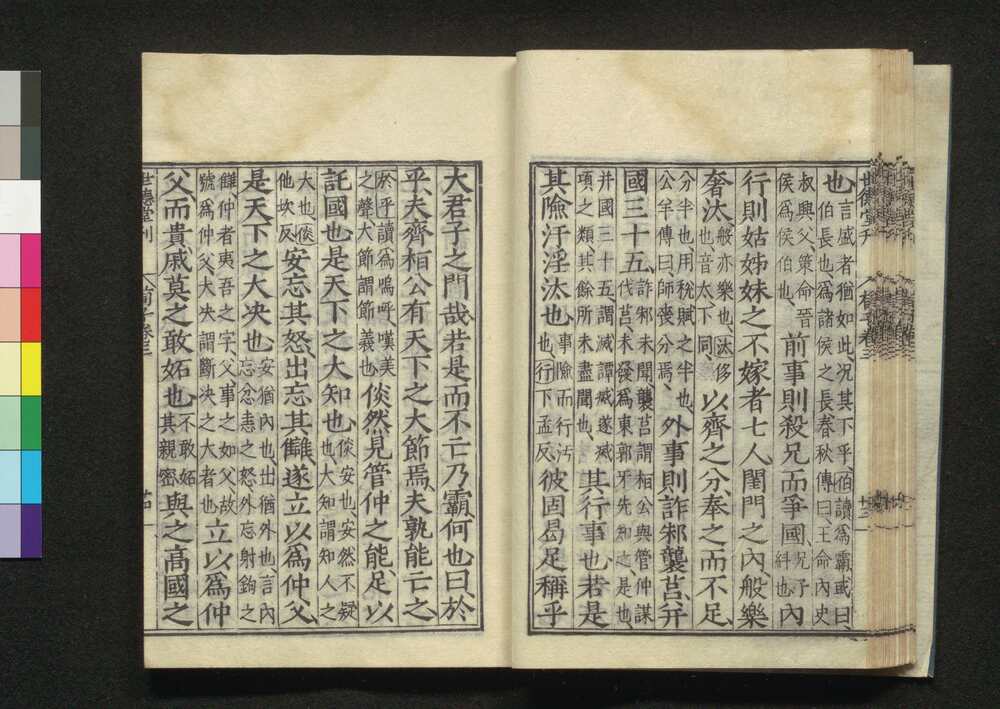 也言盛者猶如此況其下乎伯讀爲霸或曰
伯長也爲諸侯之長春秋傳曰王命內史
叔興父策命晉
侯爲侯伯也前事則殺兄而爭國兄子
糾也內
行則姑姊妹之不嫁者七人閨門之內般樂
奢汰般亦樂也汰侈
也音太下同以齊之分奉之而不足
分半也用稅賦之半也
公羊傳曰師喪分焉外事則詐邾襲莒并
國三十五詐邾未聞襲莒謂桓公與管仲謀
伐莒未發爲東郭牙先知之是也
并國三十五謂滅譚滅遂滅
項之類其餘所未盡聞也其行事也若是
其險汙淫汰也事險而行汚
也行下孟反彼固曷足稱乎
大君子之門哉若是而不亡乃霸何也曰於
乎夫齊桓公有天下之大節焉夫孰能亡之
於乎讀爲嗚呼嘆美
之聲大節謂節義也倓然見管仲之能足以
託國也是天下之大知也倓安也安然不疑
也大知謂知人之
大也倓
他坎反安忘其怒出忘其讎遂立以爲仲父
是天下之大决也安猶內也出猶外也言內
忘忿恚之怒外忘射鉤之
讎仲者夷吾之字父事之如父故
號爲仲父大决謂斷决之大者也立以爲仲
父而貴戚莫之敢妬也不敢妬
其親密與之高國之
世德堂刊
荀子卷三